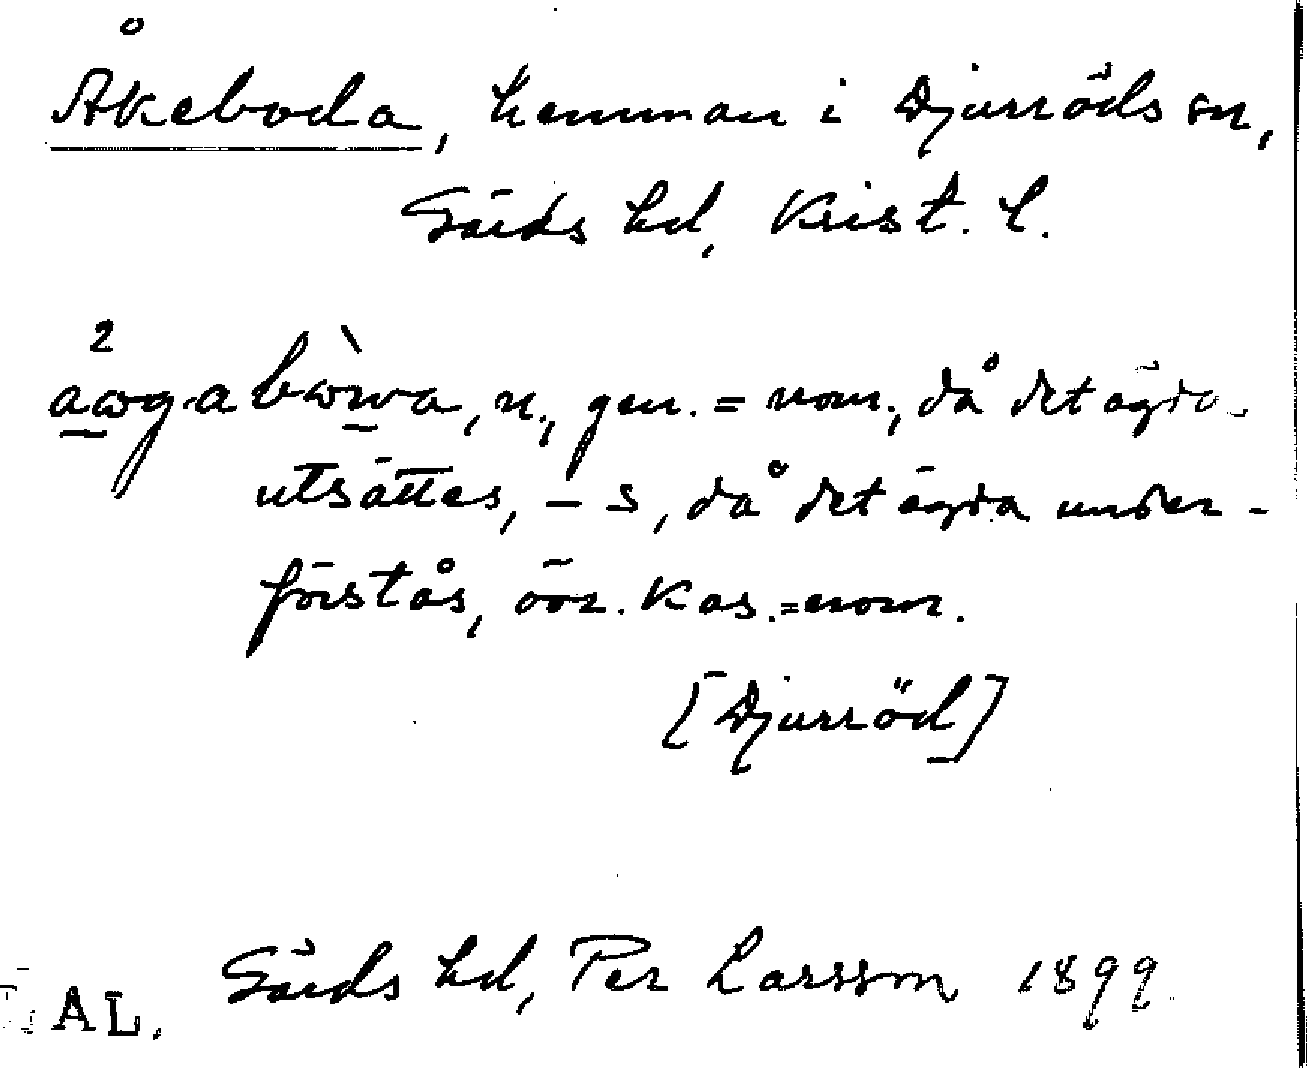 Åkeboda, hemman i Djurröds sn,
Gärds hd, Krist. l.
n., gen. = nom., då det ägda
utsättes, – s, då det ägda under-
förstås, övr. kas. = nom.
[Djurröd]
Gärds hd, Per Larsson 1899
AL.